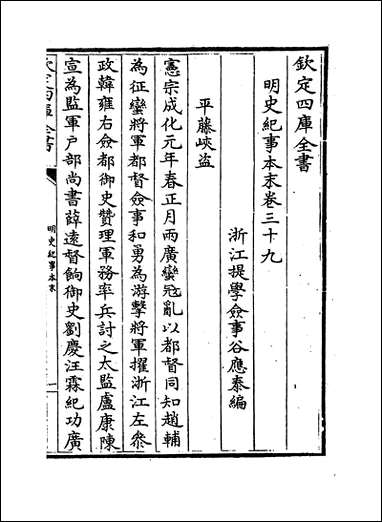 欽定四庫全書
明史紀事本末卷三十九
浙江提學僉事谷應泰編
平藤峽盜
憲宗成化元年春正月兩廣蠻冦亂以都督同知趙輔
為征蠻將軍都督僉事和勇為游擊將軍擢浙江左叅
政韓雍右僉都御史贊理軍務率兵討之太監盧康陳
宣為監軍戶部尚書薛遠督餉御史劉慶汪霖紀功廣
欽定四庫全書
明史紀事本末